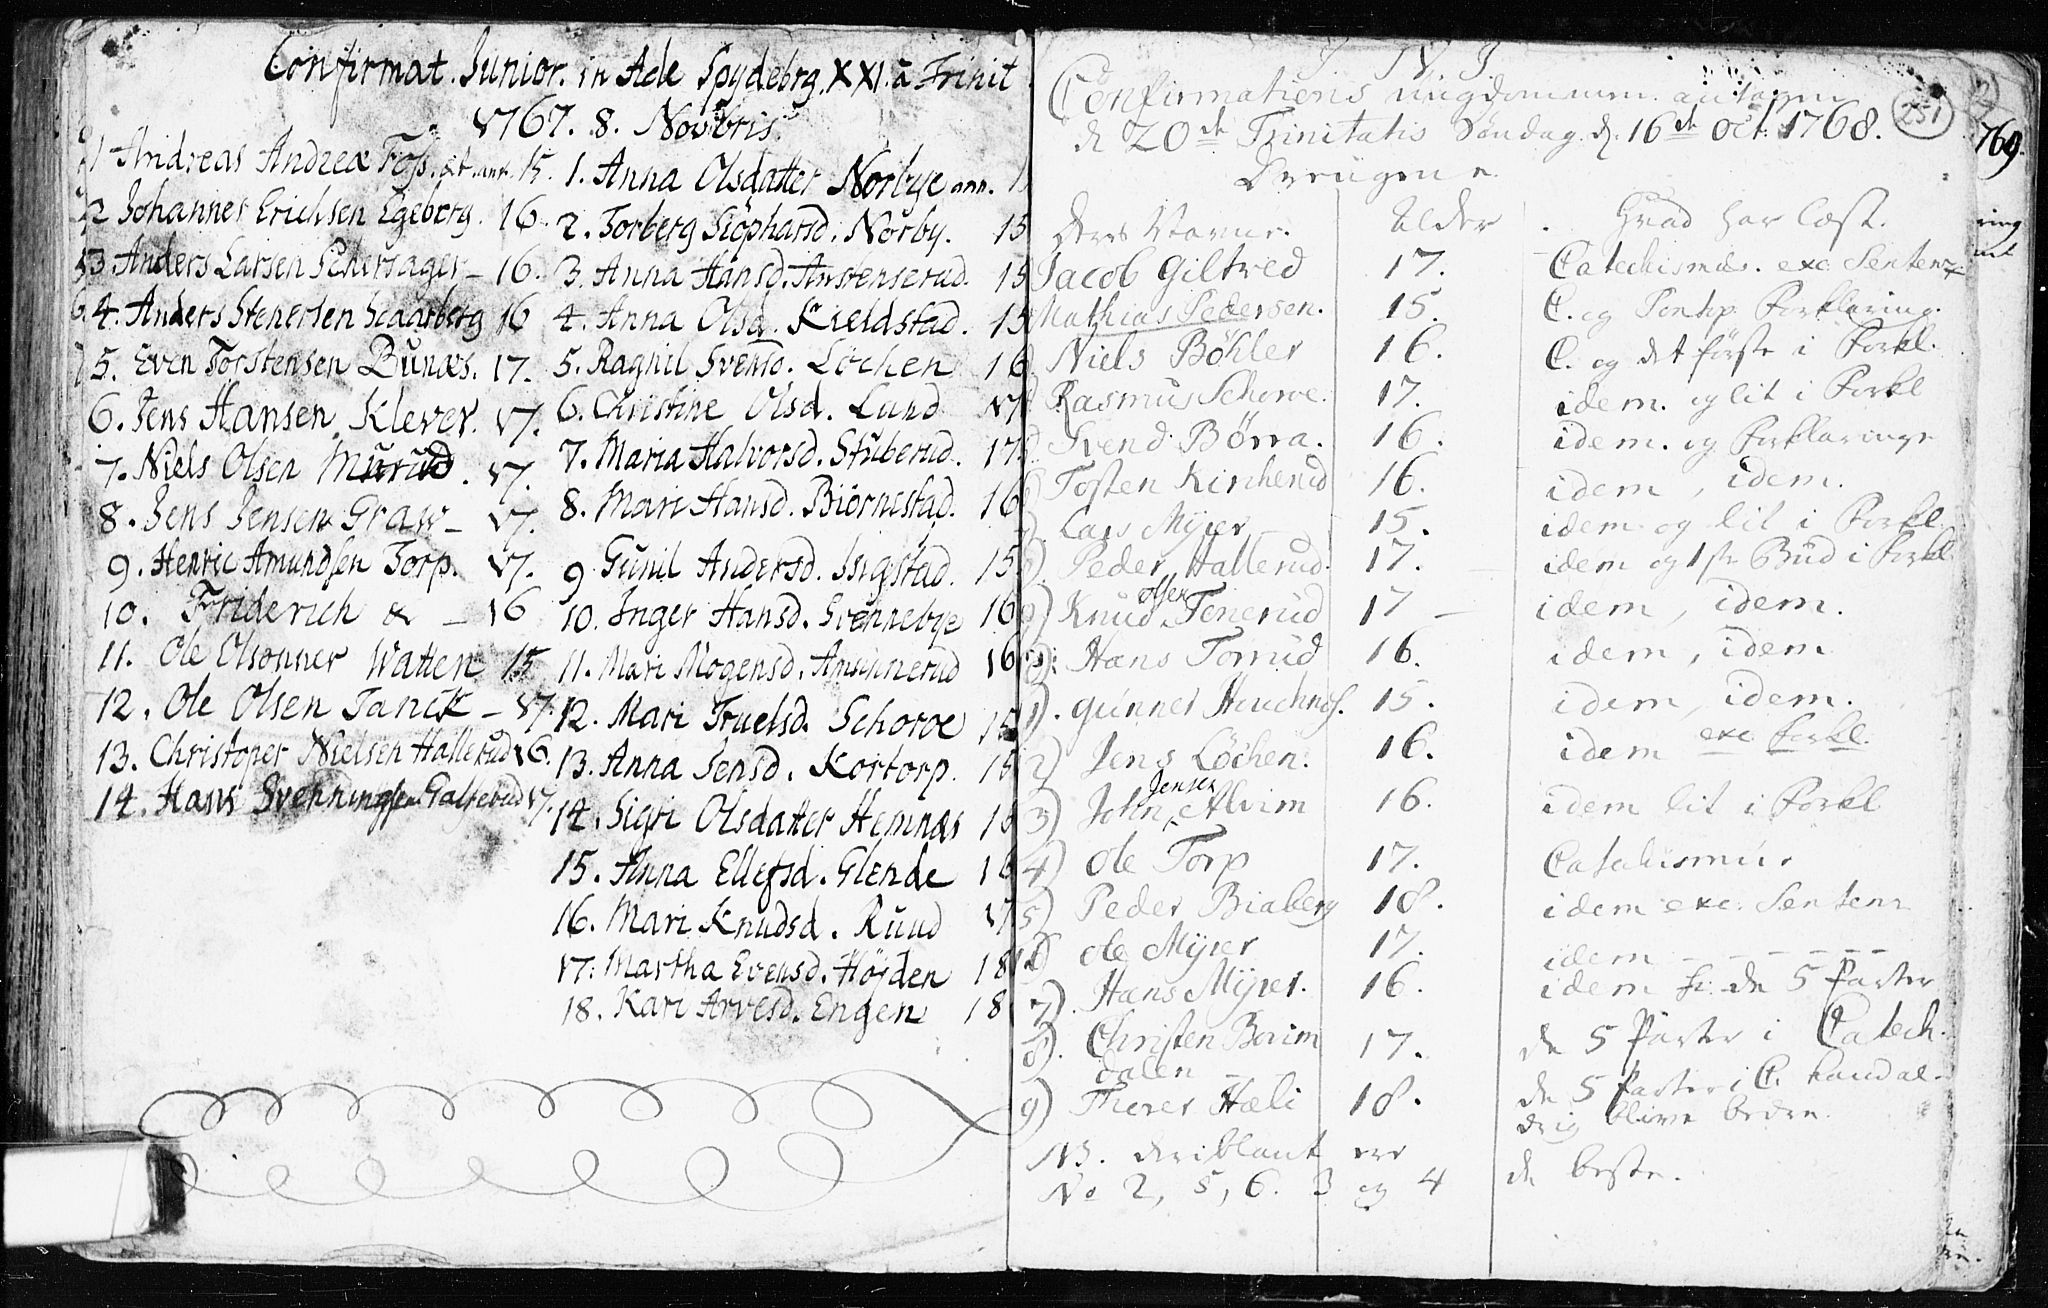 Confirmat. Junior. in Æde Spydebrg. XXI. a Trinit
1767. 8. Novbris.
1 Andreas Andreæ Foss. æt. ann. 15.
2 Johannes Erichsen Egeberg. 16.
3. Anders Larsen Schersager - 16.
4. Anders Stenersen Scaarberg 16
5. Even Torstensen Bunæs. 17.
6. Jens Hansen Klever. 17.
7. Niels Olsen Murud. 17.
8. Jens Jensen Graw - 17.
9. Henric Amundsen Torp. 17.
10. Friderich & - 16
11. Ole Olsønner Watten 15
12. Ole Olsen Tanck - 17.
13. Christoper Nielsen Hallerud 16.
14. Hans Svenningsen Galterud 17.
1. Anna Olsdatter Norbye ann. 1
2. Torberg Siöphersd. Nörby. 15
3. Anna Hansd. Anstenserud. 15
4. Anna Olsd. Kieldstad. 15
5. Ragnil Svensd. Löchen 16
6. Christine Olsd. Lund 17
7. Maria Halvorsd. Stuberud. 17
8. Mari Hansd. Biörnestad. 16
9 Gunil Andersd. Isigstad. 15
10. Inger Hansd. Svennebye 16
11. Mari Mogensd. Amunnerud 16
12. Mari Truelsd. Schoroe 15
13. Anna Jensd. Kortorp. 15
14. Sigri Olsdatter Hemnæs 16
15. Anna Ellefsd. Glende 16
16. Mari Knudsd. Ruud 17
17. Martha Evensd. Höjden 18
18. Kari Arvesd. Engen 18
J N J
251
Confirmations ungdommen antagen
d 20de Trinitatis Søndag d. 16de Oct. 1768.
Drengene
Deres Navne. Alder Hvad har læst.
Jacob Giltved 17. Catechismus. exc Sentenz
Mathias Pedersen. 15. C. og Pontop Forklaring.
Niels Böhler 16. C. og det første i Forkl.
Rasmus Schoroe. 17. idem. og lit i Forkl
Svend Børra. 16. idem. og Forklaringe
Tosten Kirkerud 16. idem, idem.
Lars Myrer 15. idem og lit i Forkl
Peder Hallerud. 17. idem og 1ste Bud i Forkl
9) Knud Olsen Tenerud 17 idem, idem.
Hans Torrud 16. idem, idem
1). Gunner Huuchnes. 15. idem, idem.
2) Jens Löchen. 16. idem exc Forkl.
3) John Jensen Alvim 16. idem lit i Forkl
4) Ole Torp 17. Catechismus
5) Peder Biaberg 18. idem exc. Sentenz
6) Ole Myrer 17. idem - - - - -
7). Hans Myrer. 16. idem de 5 Parter
8). Christen Borim 17. de 5 Parter i Catech.
dalen
9) Therer Hæli 18. de 5 Parter i C. kand al-
drig blive bedre.
NB. deriblant ere de beste.
No 2, 5, 6. 3 og 4
769.